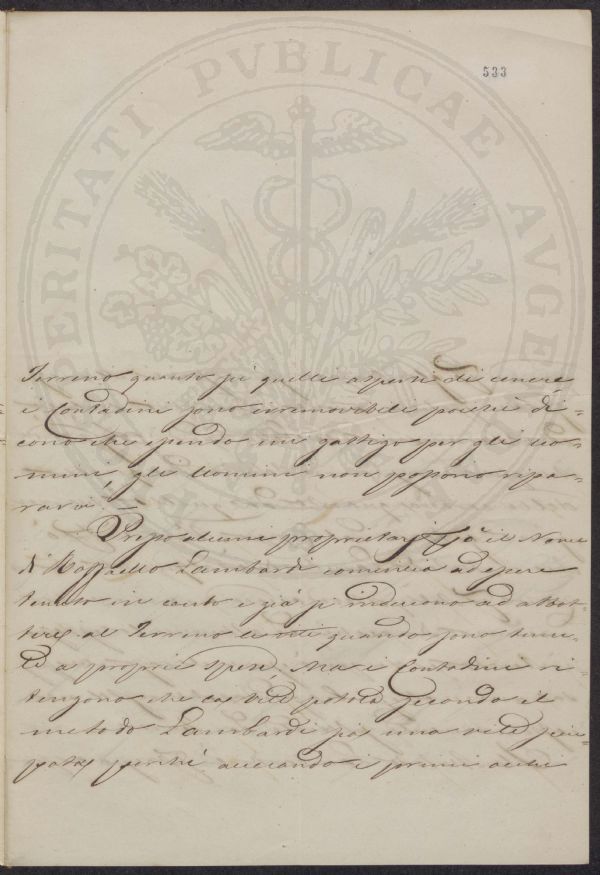 533
PROSPERITATI PVBLICAE AVGE
Terreno quanto pi quelli aspersi di cenere
i Contadini sono irremovibili poiché di=
cono che essendo un gastigo per gli Uo=
mini, gli Uomini non possono ripa=
rarvi. —
Presso alcuni proprietarj già il Nome
di Raffaello Lambardi comincia ad essere
tenuto in conto e già si inducono ad abbat=
tere al Terreno le viti quando sono tenu=
te a proprie spese, Ma i Contadini ri=
tengono che la vite potata secondo il
metodo Lambardi sia una vite sciu=
pata perché accecando i primi occhi